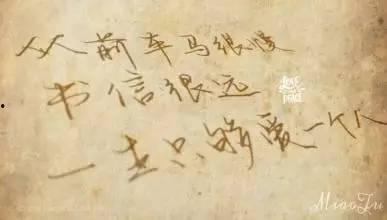 从前车马很慢
书信很远
一生只够爱一个人
LOVE
PEACE
MiaoFu